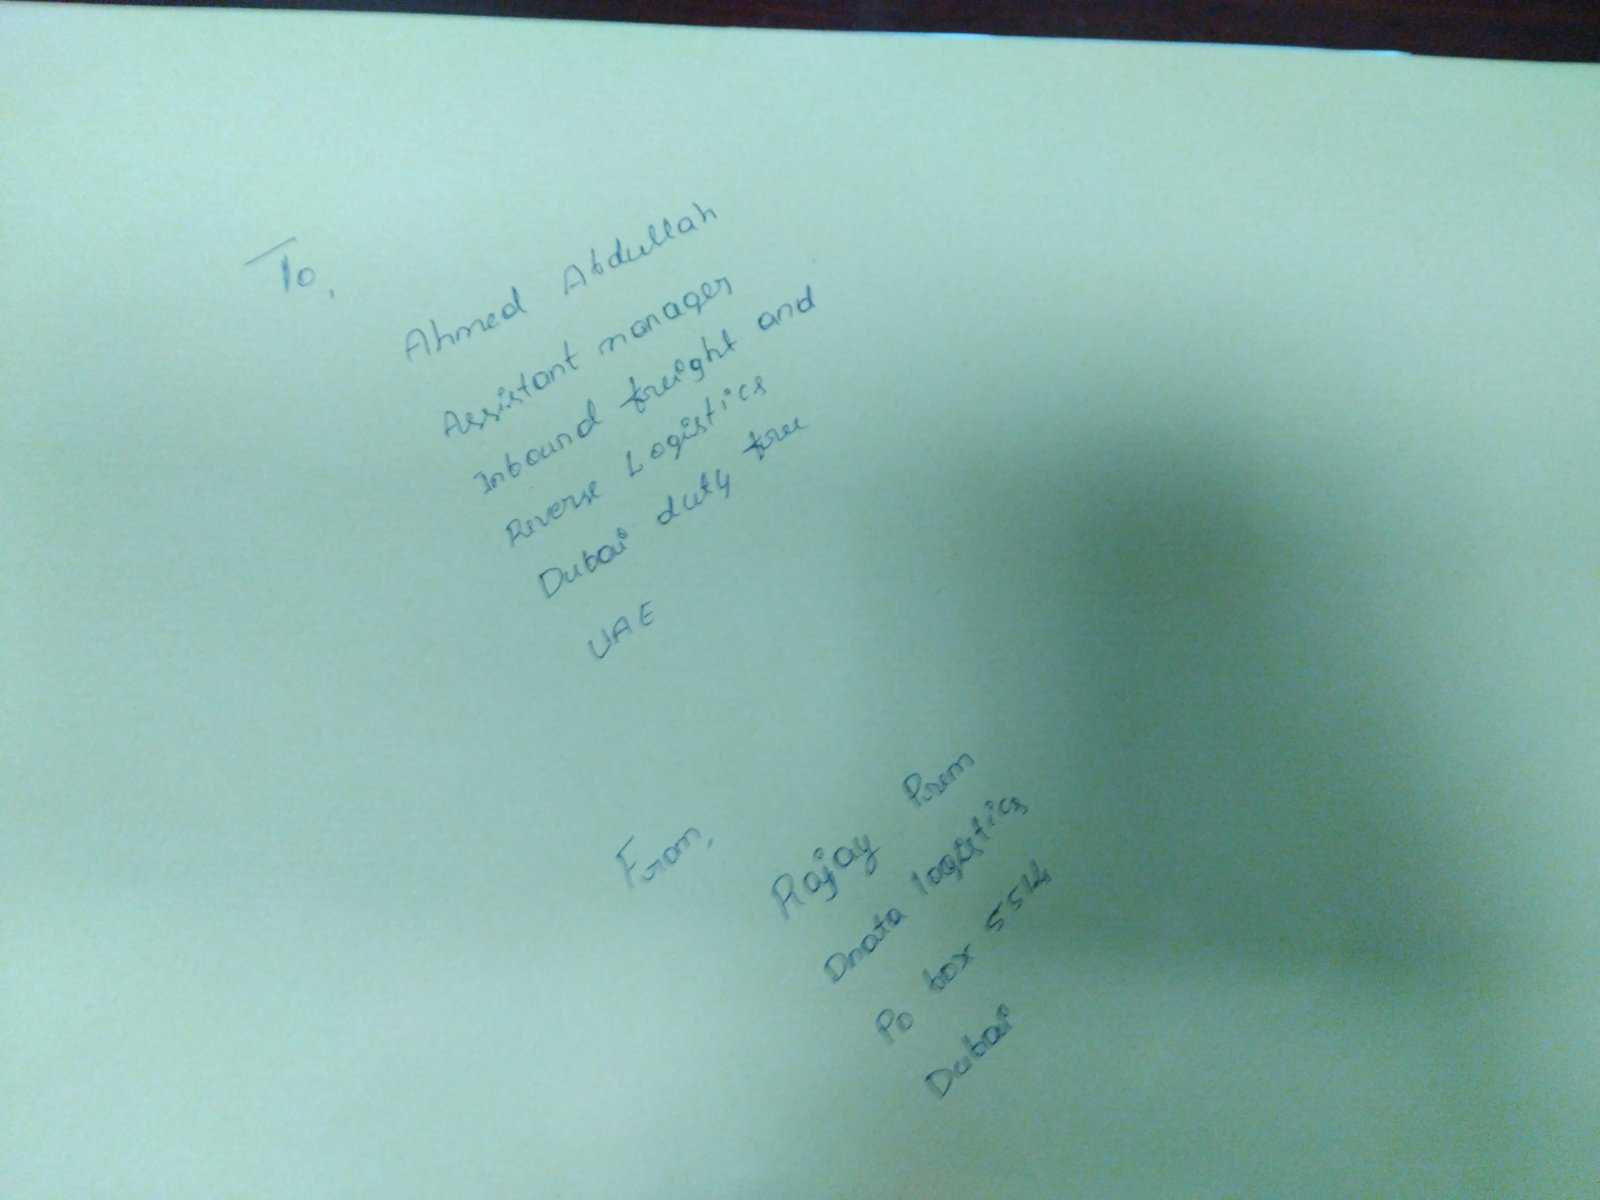 To,
Ahmed Abdullah
Assistant manager
Inbound freight and
Reverse Logistics
Dubai duty free
UAE
From,
Rajay Prem
Dnata logistics
Po box 5514
Dubai